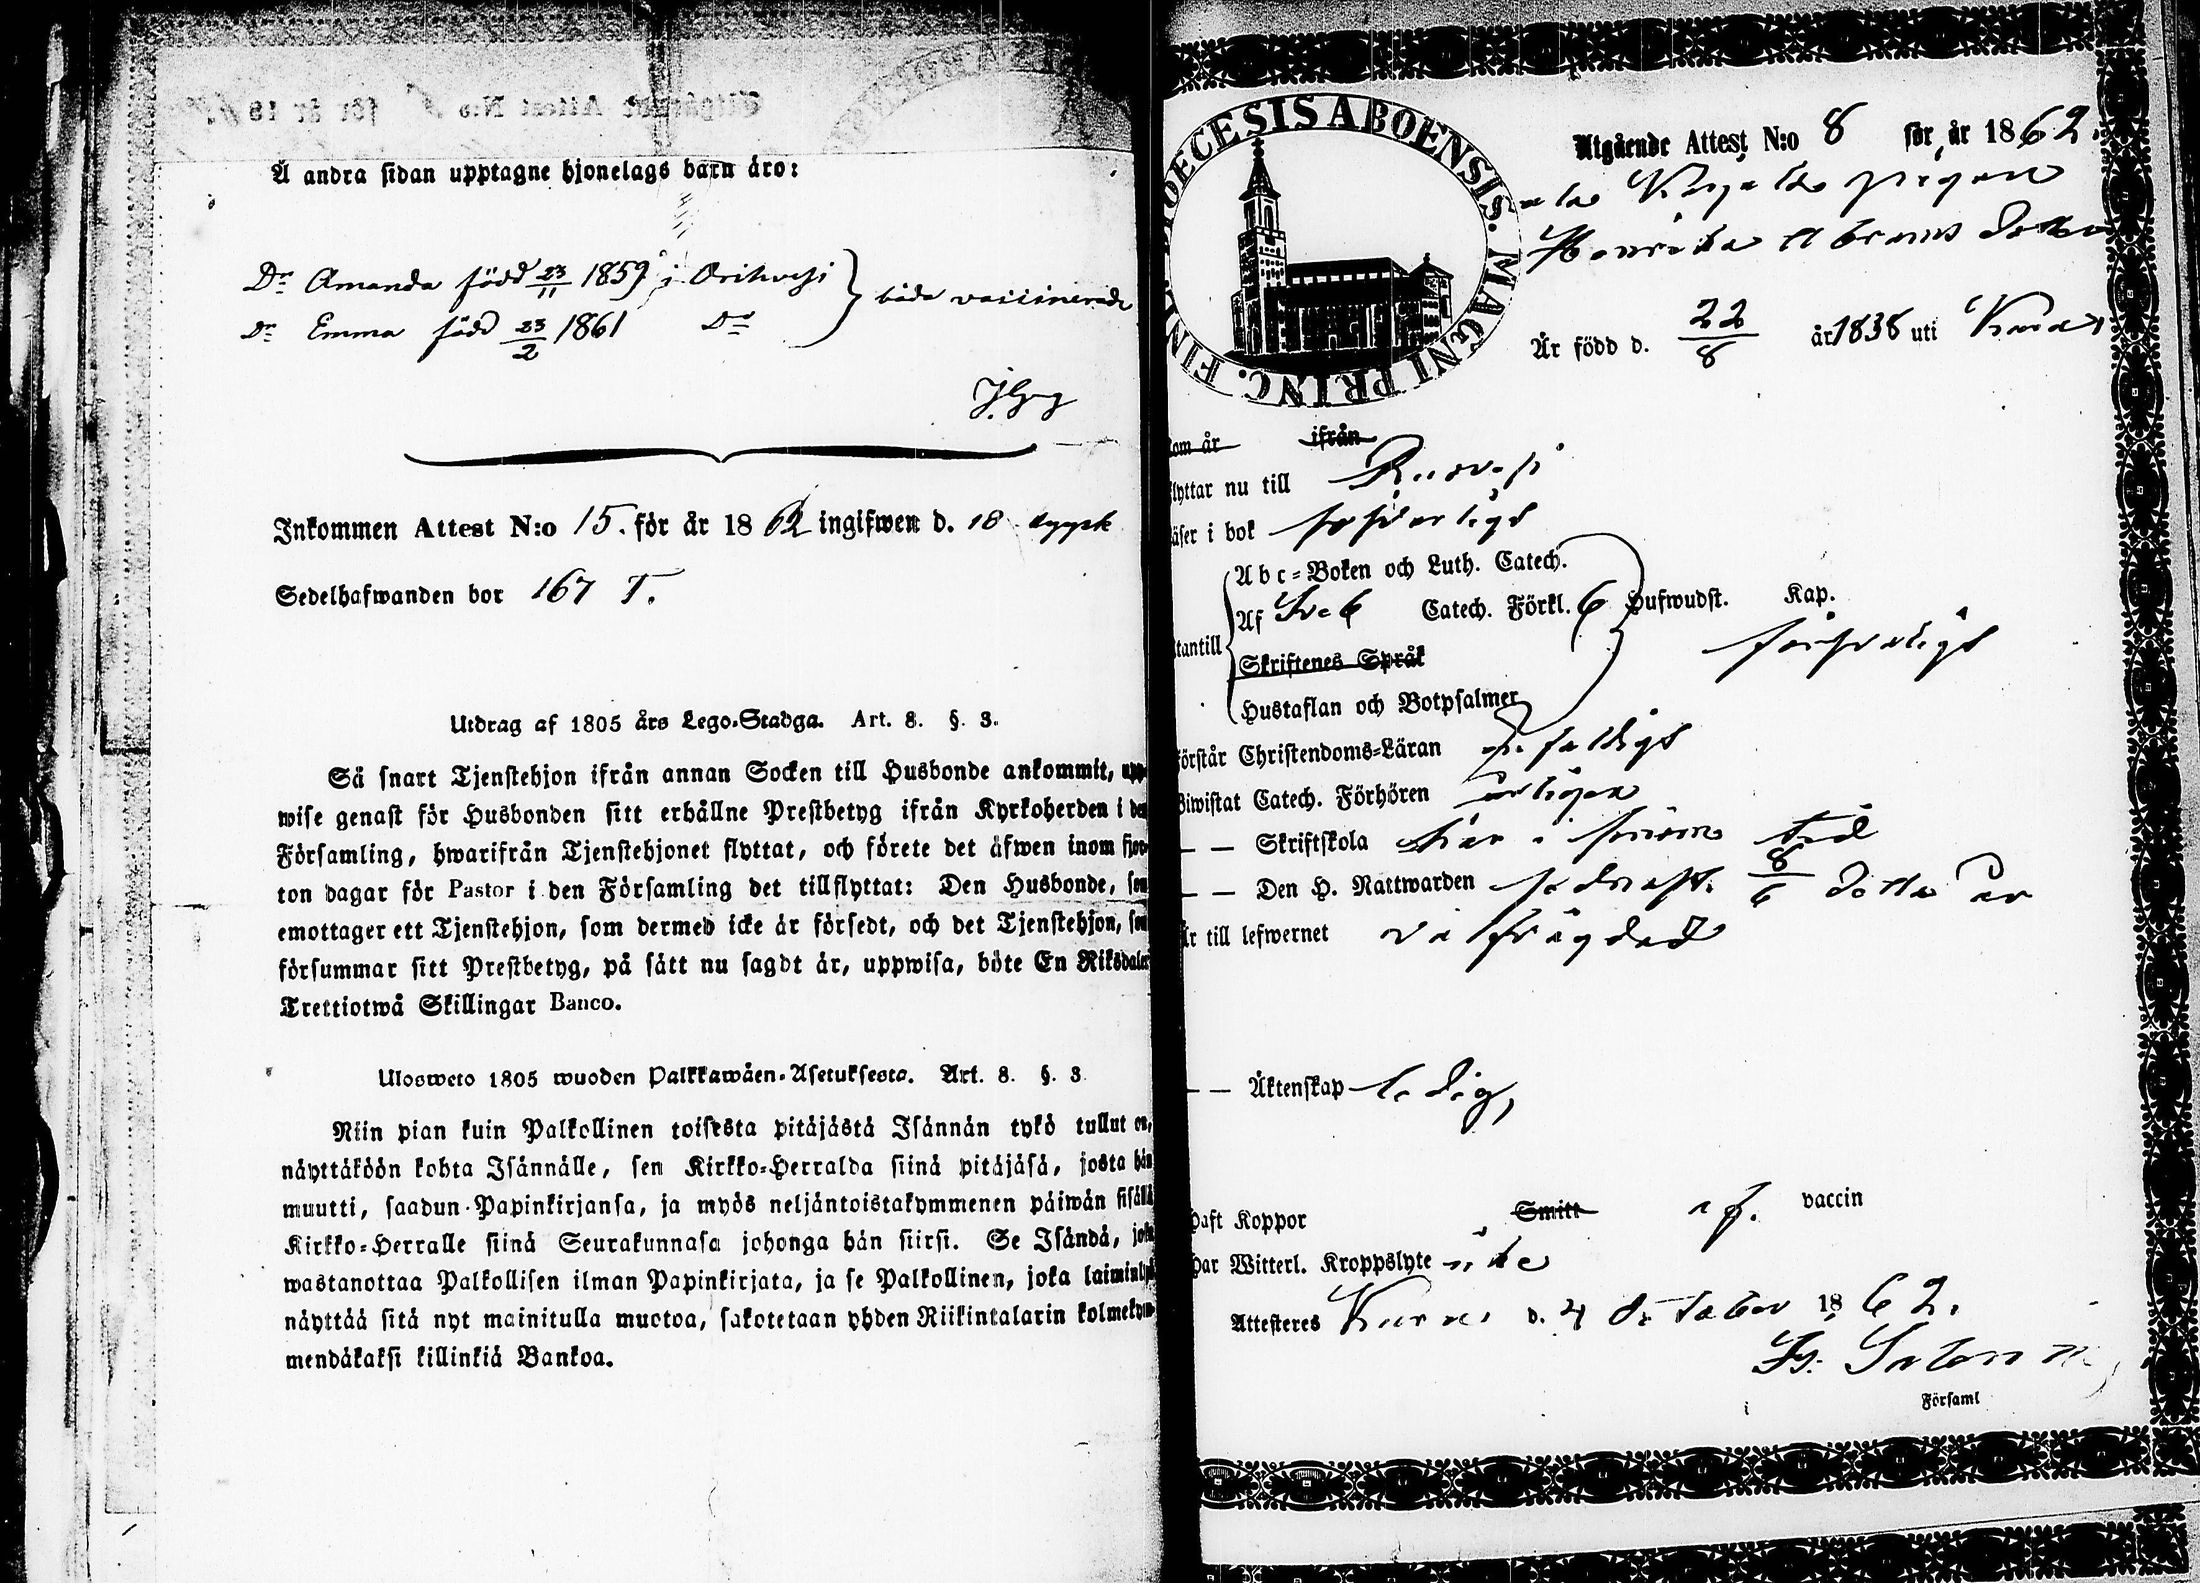 Å andra sidan upptagne hjonelags barn äro:
Dr Amanda född 23/11 1859 i Orihvesi
Dr Emma född 23/2 1861 Do
båda vaccinerade
Inkommen Attest N:o 15. för år 1862 ingifwen d. 18
Sedelhafwanden bor 167 T.
Utdrag af 1805 års Lego-Stadga. Art. 8. §. 3.
Så snart Tjenstehjon ifrån annan Socken till Husbonde ankommit, upp-
wise genast för Husbonden sitt erhållne Prestbetyg ifrån Kyrkoherden i den
Församling, hwarifrån Tjenstehjonet flyttat, och förete det äfwen inom fjor-
ton dagar för Pastor i den Församling det tillflyttat: Den Husbonde, som
emottager ett Tjenstehjon, som dermed icke är försedt, och det Tjenstehjon, som
försummar sitt Prestbetyg, på sätt nu sagdt är, uppwisa, böte En Riksdaler
Trettiotwå Skillingar Banco.
Ulosweto 1805 wuoden Palkkawäen-Asetuksesta. Art. 8. §. 3.
Niin pian kuin Palkollinen toisesta pitäjästä Isännän tykö tullut on,
näyttäköön kohta Isännälle, sen Kirkko-Herralda siinä pitäjäsä, josta hän
muutti, saadun Papinkirjansa, ja myös neljäntoistakymmenen päiwän sisällä
Kirkko-Herralle siinä Seurakunnasa johonga hän siirsi. Se Isändä, joka
wastanottaa Palkollisen ilman Papinkirjata, ja se Palkollinen, joka laiminlyö
näyttää sitä nyt mainitulla muotoa, sakotetaan yhden Riikintalarin kolmekym-
mendäkaksi killinkiä Bankoa.
FINL. DIOECESIS ABOENSIS. MAGNI PRINC.
Utgående Attest N:o 8 för år 1862.
pigan
Henrika Abrams dotter
Är född d. 22/8 år 1838 uti
kom år ifrån
flyttar nu till Ruovesi
läser i bok försvarligt
Abc-Boken och Luth. Catech.
Af Sveb Catech. Förkl. 6 Hufwudst. Kap.
utantill
försvarligt
Skriftenes Språk
Hustaflan och Botpsalmer
Förstår Christendoms-Läran enfaldigt
Biwistat Catech. Förhören årligen
— — Skriftskola här i sinom tid
— — Den H. Nattwarden sednast. 8/6 detta år
Är till lefwernet välfrägdad
— — Äktenskap ledig,
Haft Koppor Smitt af. vaccin
Har Witterl. Kroppslyte icke
Attesteres d. 4 October 1862.
Församl